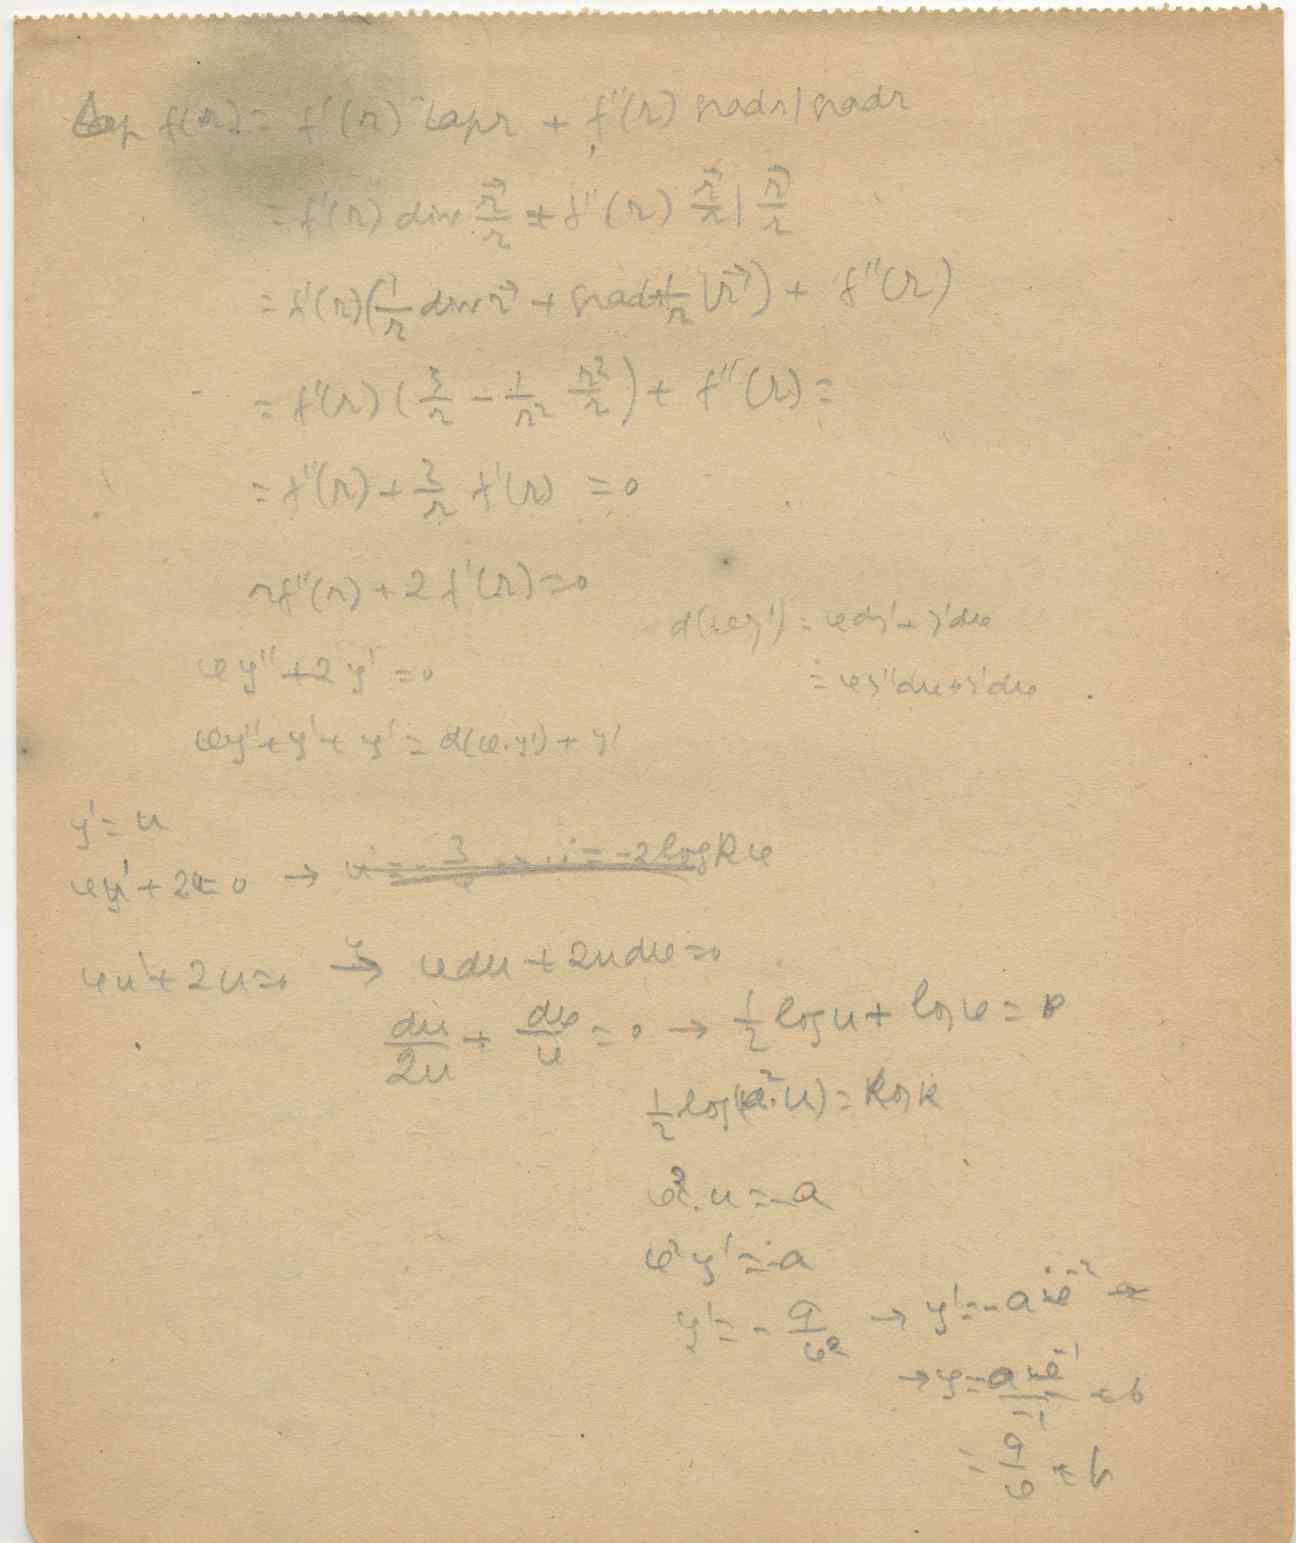 Lap f(r) = f'(r) lap r + f''(r) grad r | grad r
= f'(r) div r⃗/r + f''(r) r⃗/r | r⃗/r
= f'(r)(1/r div r⃗ + grad 1/r | r⃗) + f''(r)
= f'(r)(3/r - 1/r² r²/r) + f''(r) =
= f''(r) + 2/r f'(r) = 0
r f''(r) + 2 f'(r) = 0
d(xy') = xdy' + y'dx
xy'' + 2y' = 0
= xy''dx + y'dx
xy'' + y' + y' = d(x.y') + y'
y' = u
→ = -2 log kx
xu' + 2u = 0 → xdu + 2udx = 0
du/2u + dx/x = 0 → 1/2 log u + log x = k
1/2 log(x².u) = log k
x².u = -a
x²y' = -a
y' = - a/x² → y' = -ax⁻²
→ y = -ax⁻¹/-1 + b
= a/x + b